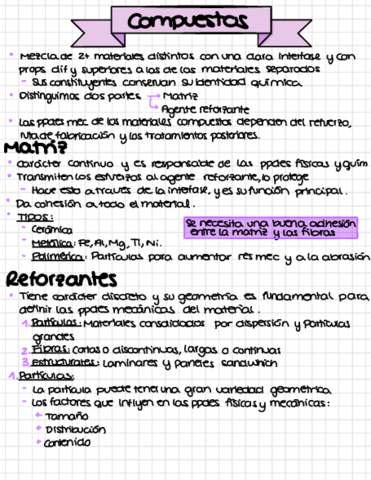 Compuestos
• Mezcla de 2+ materiales distintos con una clara interfase y con
props dif y superiores a las de los materiales separados
- Sus constituyentes conservan su identidad química.
• Distinguimos dos partes → Matriz
→ Agente reforzante
• Las ppdes mec de los materiales compuestos dependen del refuerzo,
ruta de fabricación y los tratamientos posteriores.
Matriz
• Carácter continuo y es responsable de las ppdes físicas y quim
• Transmiten los esfuerzos al agente reforzante, lo protege
- Hace esto a traves de la interfase, y es su función principal.
• Da cohesión a todo el material.
• TIPOS:
- Cerámica
- Metálica: Fe, Al, Mg, Ti, Ni.
- Polimérica: Partículas para aumentar res mec y a la abrasión
Se necesita una buena adhesión
entre la matriz y las fibras
Reforzantes
• Tiene carácter discreto y su geometría es fundamental para
definir las ppdes mecánicas del material.
1. Partículas: Materiales consolidados por dispersión y Partículas
grandes
2. Fibras: Cortas o discontinuas, largas o continuas
3. Estructurales: Laminares y paneles sandwhich
1. Partículas:
- La partícula puede tener una gran variedad geométrica
- Los factores que influyen en las ppdes físicas y mecánicas:
+ Tamaño
+ Distribución
+ Contenido